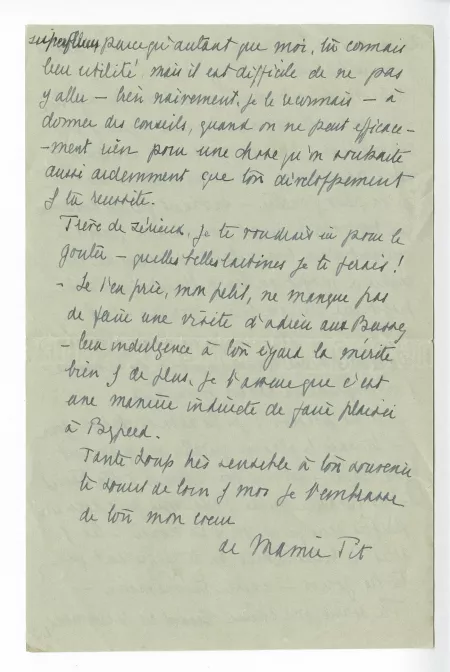 superflus parce qu'autant que moi, tu connais
leur utilité, mais il est difficile de ne pas
y aller – bien naïvement, je le reconnais – à
donner des conseils, quand on ne peut efficace-
-ment rien pour une chose qu'on souhaite
aussi ardemment que ton développement
& ta réussite.
Trève de sérieux, je te voudrais ici pour le
goûter – quelles belles tartines je te ferais !
- Je t'en prie, mon petit, ne manque pas
de faire une visite d'adieu aux
– leur indulgence à ton égard la mérite
bien & de plus, je t'assure que c'est
une manière indirecte de faire plaisir
à
Tante Loup très sensible à ton souvenir
te sourit de loin & moi je t'embrasse
de tout mon cœur
de Mamie Tit